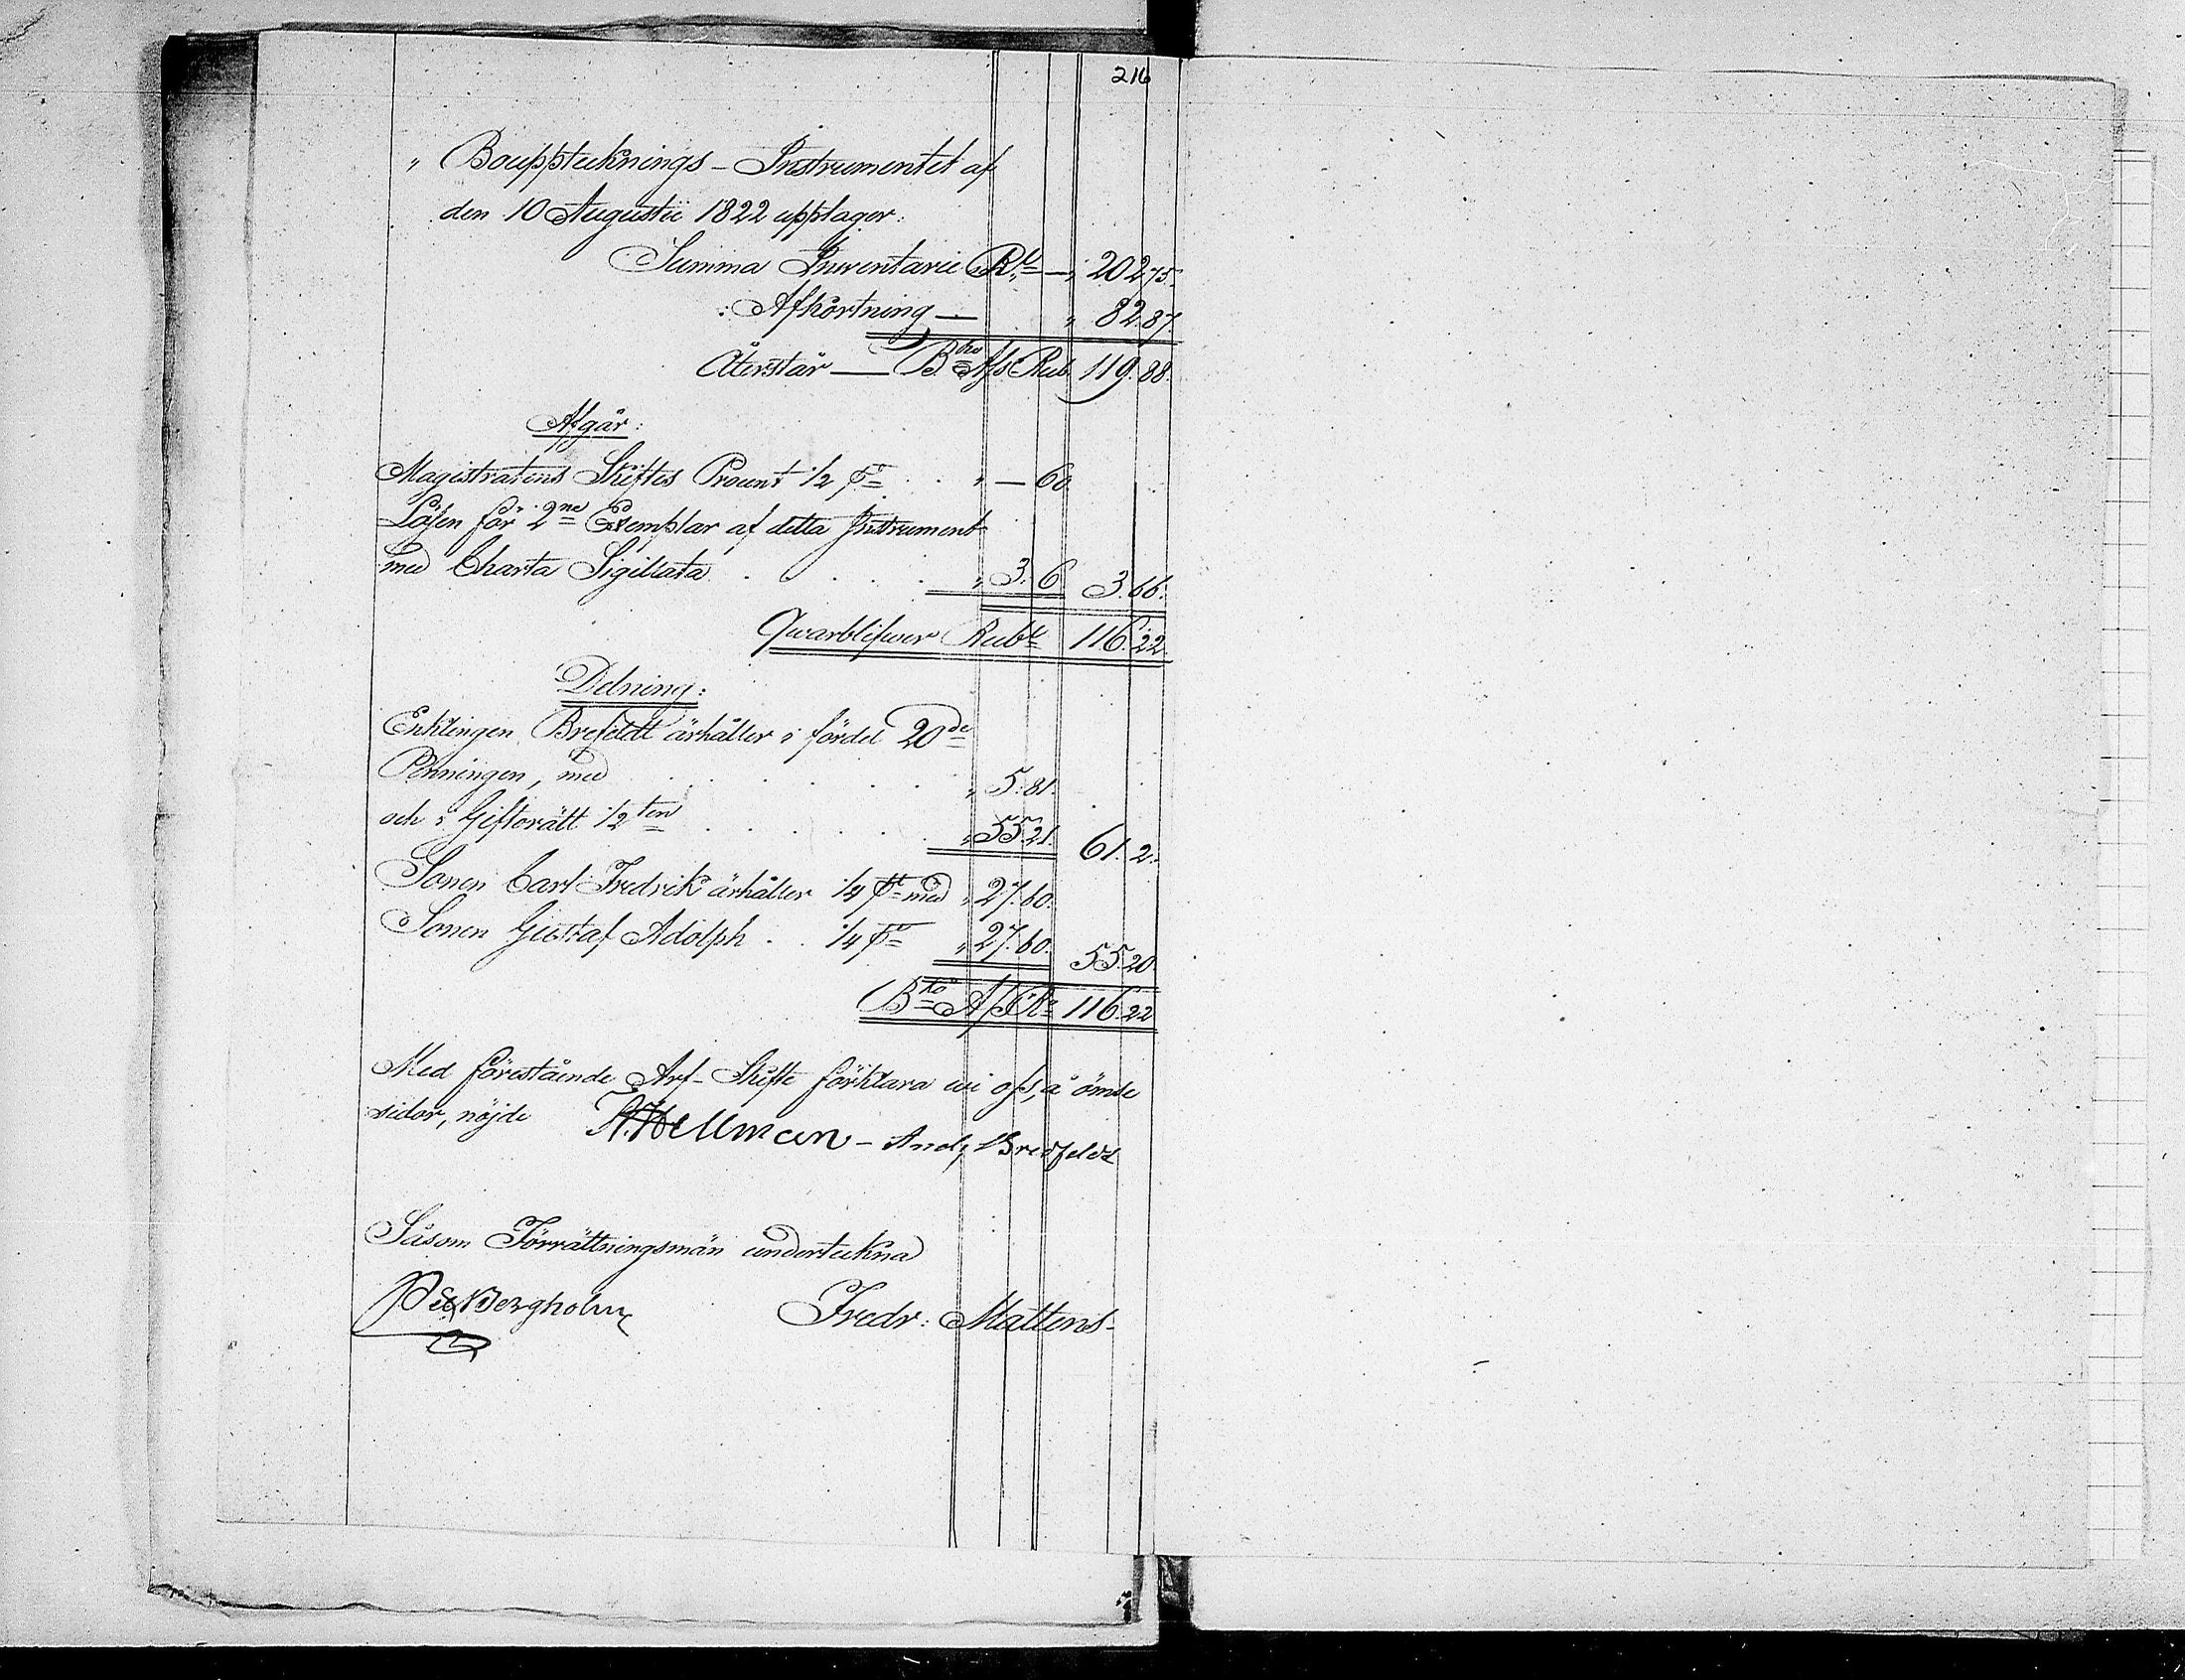 216
„ Bouppteknings-Instrumentet af
den 10 Augustii 1822 upptager:
Summa Inventarie Rl — „ 202.75.
Afkortning — „ 82.87.
Återstår — Bko Ass Rub. 119.88.
Afgår:
Magistratens Skiftes Procent 1/2 pt . . „ — 60.
Lösen för 2ne Exemplar af detta Instrument
med Charta Sigillata . . . . . „ 3. 6. 3.66.
Qwarblifwer Rubl 116.22.
Delning:
Enklingen Brefeldt ärhåller i fördel 20de
Penningen, med . . . . . „ 5.81.
och i Giftorätt 1/2ten . . . . . „ 55.21. 61.2.
Sonen Carl Fredrik ärhåller 1/4 pt med „ 27.60.
Sonen Gustaf Adolph . . 1/4 pt „ 27.60. 55.20.
Bko Ass R 116.22
Med förestående Arf-Skifte förklara wi oss, å ömse
sidor, nöjde Hellman — And, Bredfeldt
Såsom Förrättningsmän underteckna
Bergholm Fredr: Mattens-